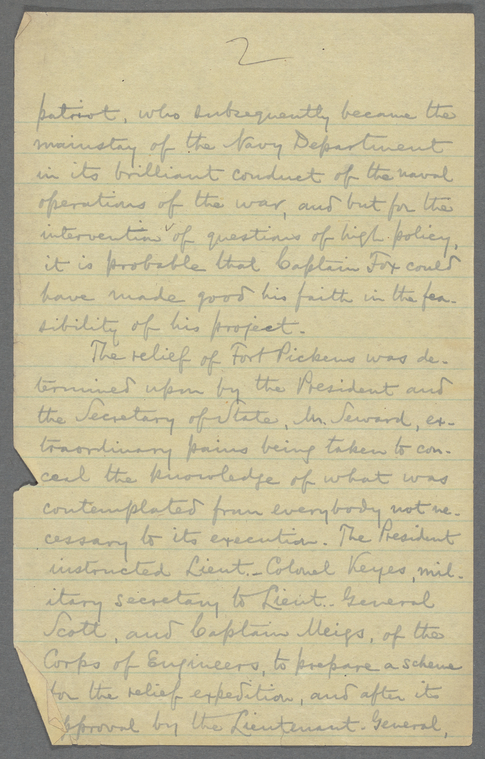 2
patriot, who subsequently became the
mainstay of the Navy Department
in its brilliant conduct of the naval
operations of the war, and but for the
intervention of questions of high policy,
it is probable that Captain Fox could
have made good his faith in the fea-
sibility of his project.
The relief of Fort Pickens was de-
termined upon by the President and
the Secretary of State, Mr. Seward, ex-
traordinary pains being taken to con-
ceal the knowledge of what was
contemplated from everybody not ne-
cessary to its execution. The President
instructed Lieut.-Colonel Keyes, mil-
itary secretary to Lieut.-General
Scott, and Captain Meigs, of the
Corps of Engineers, to prepare a scheme
for the relief expedition, and after its
approval by the Lieutenant-General,